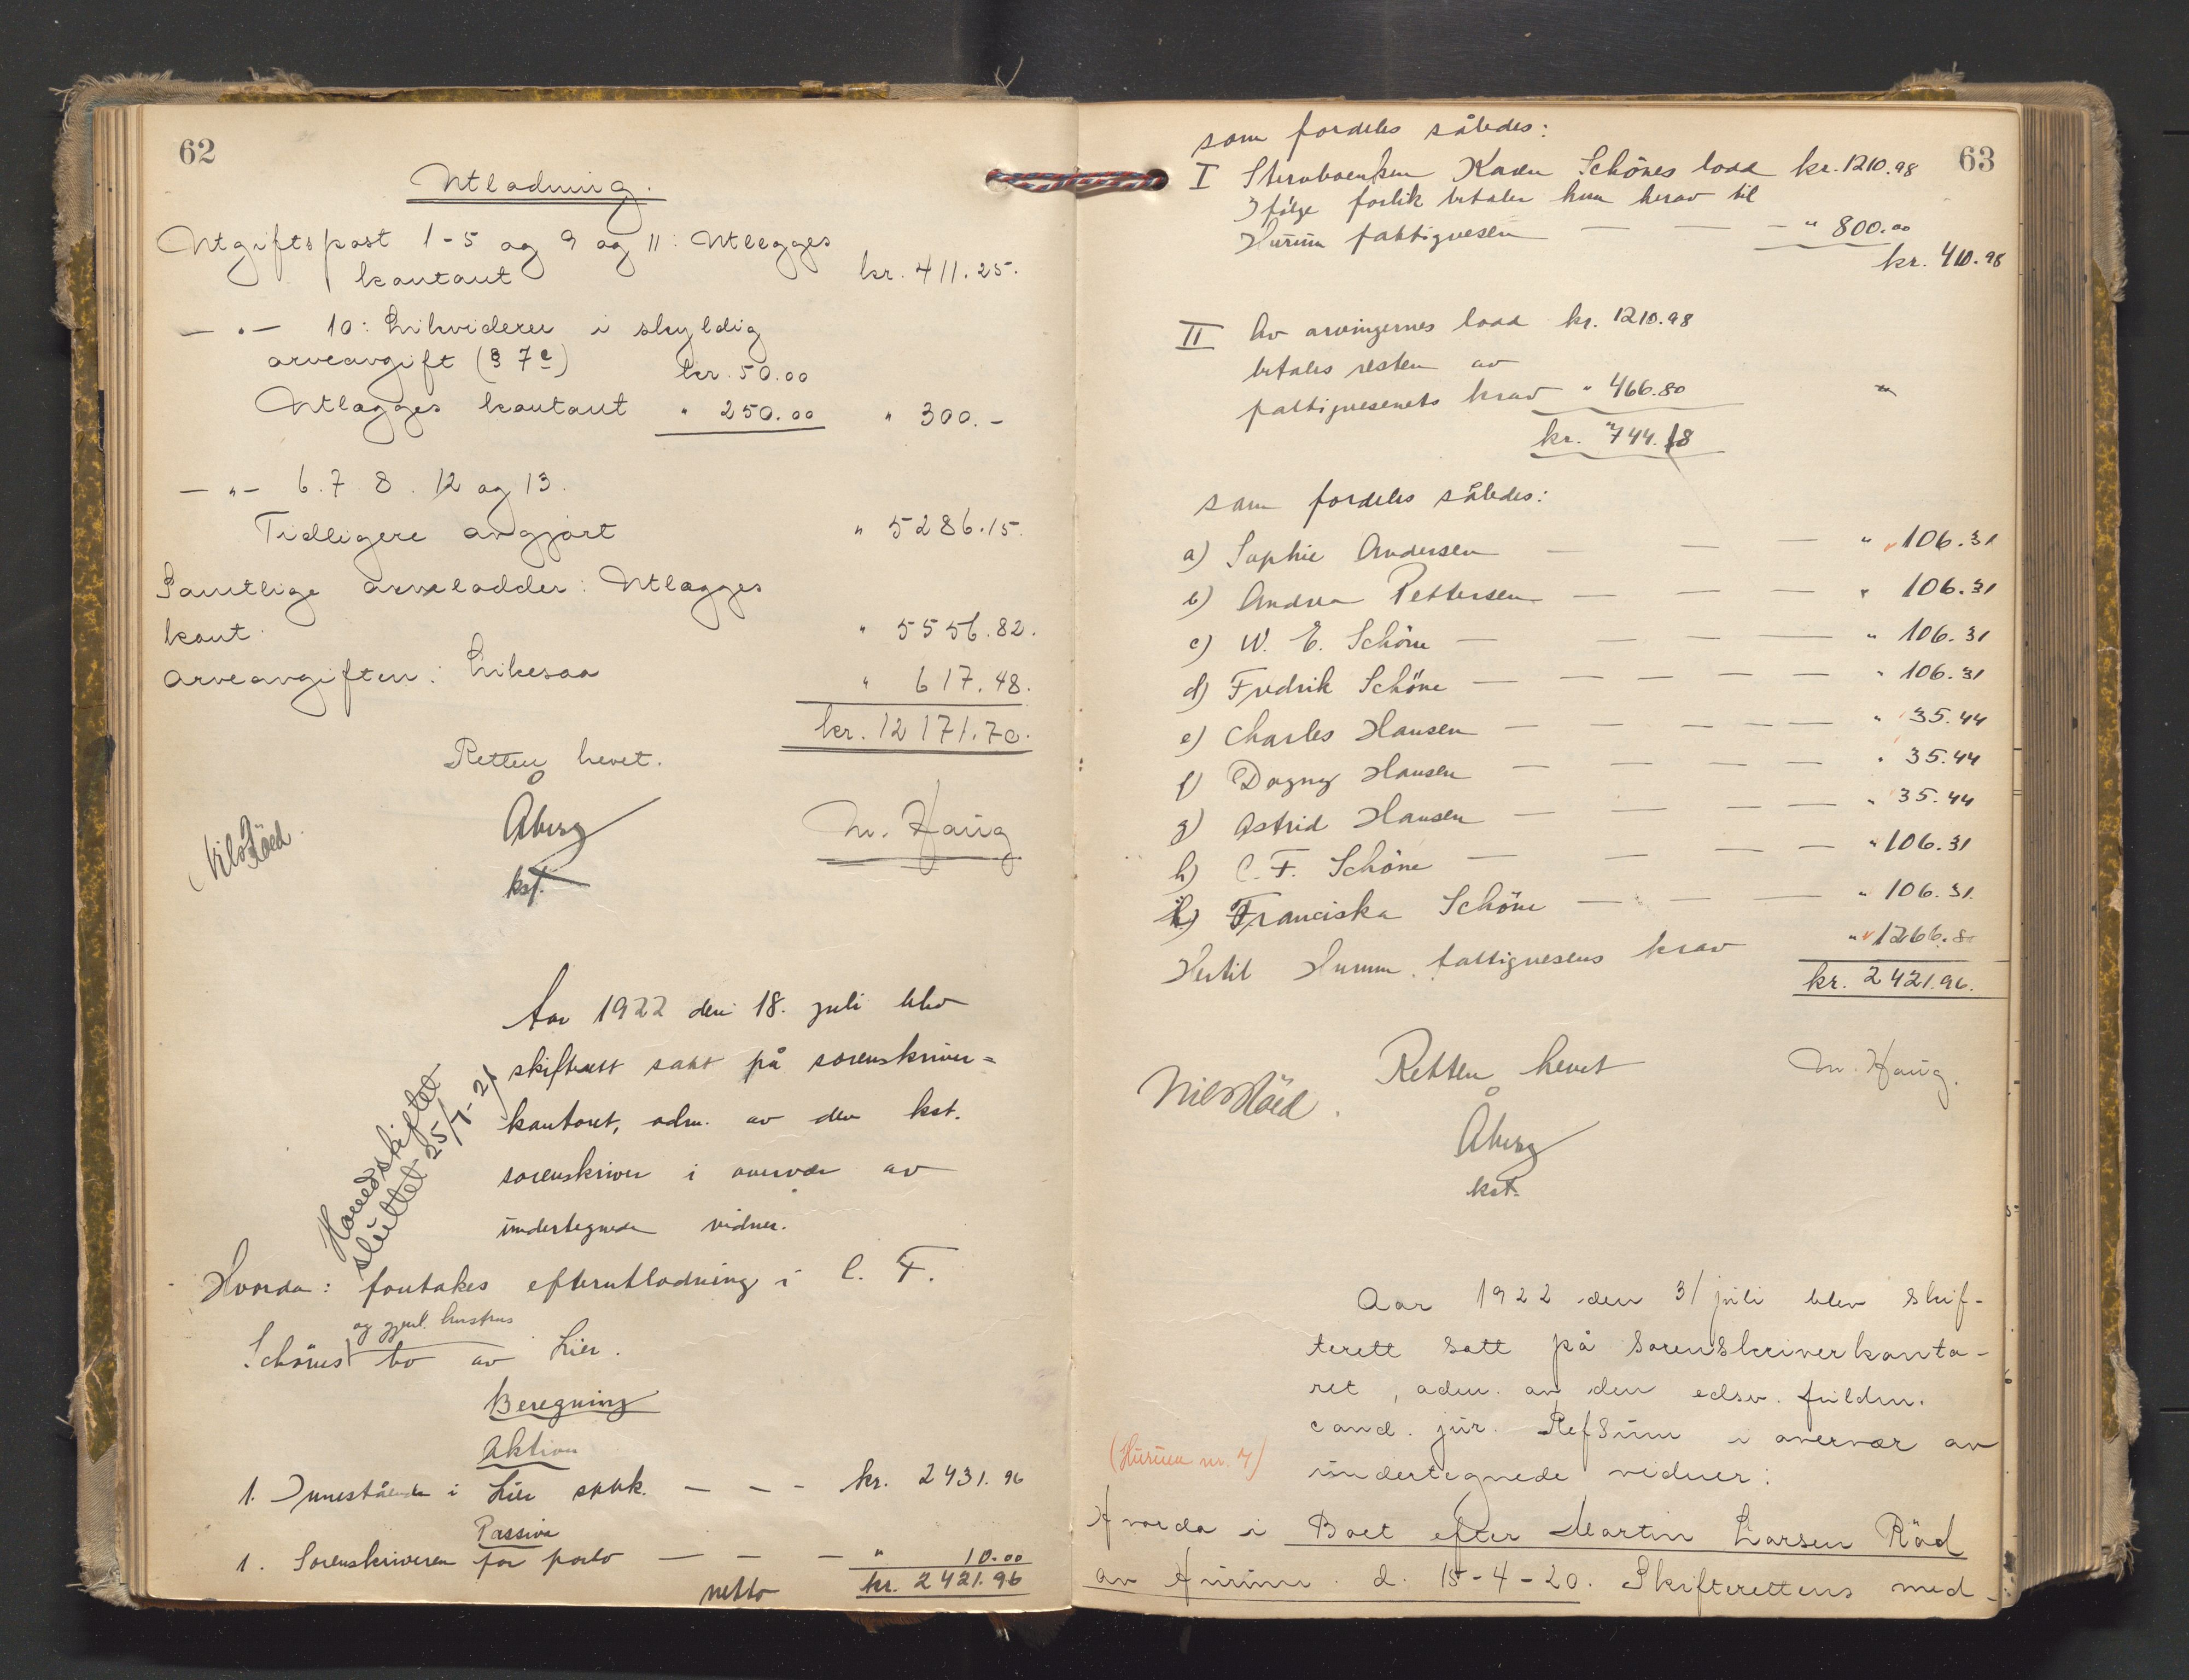 62
Utlodning.
Utgiftspost 1-5 og 9 og 11: Utlegges
kontant kr. 411.25.
— „ — 10: Likviderer i skyldig
arveavgift (§ 7 c) kr. 50.00
Utlægges kontant „ 250.00 „ 300.-
— „ — 6. 7. 8. 12 og 13.
Tidligere avgjort „ 5286.15.
Samtlige arvelodder: Utlægges
kont. „ 5556.82.
Arveavgiften: Likesaa „ 617.48.
kr. 12171.70.
Retten hevet.
Åberg M. Haug
Nils Röed.
kst.
Aar 1922 den 18. juli blev
skifterett satt på sorenskriver=
kontoret, adm. av den kst.
sorenskriver i overvær av
undertegnede vidner.
Hovedskiftet
sluttet 25/7-21
Hvorda: foretakes efterutlodning i C. F.
og gjenl. hustrus
Schönes bo av Lier.
Beregning
Aktiva
1. Innestående i Lier spbk. — — - kr. 2431.96
Passiva
1. Sorenskriveren for porto — — — „ 10.00
netto kr. 2421.96
63
som fordeles således:
I Stervboenken Karen Schönes lodd kr. 1210.98
Ifölge forlik betaler hun herav til
Hurum fattigvesen — — — „ 800.00
kr. 410.98
II Av arvingernes lodd kr. 1210.98
betales resten av
fattigvesenets krav „ 466.80 „
kr. 744.18
som fordeles således:
a) Sophie Andersen — — — „ 106.31
b) Andrea Pettersen — — — „ 106.31
c) W. E. Schöne — — — „ 106.31
d) Fredrik Schöne — — — — — „ 106.31
e) Charles Hansen — — — — — „ 35.44
f) Dagny Hansen — — — — „ 35.44
g) Astrid Hansen — — — — „ 35.44
h) C. F. Schöne — — — — „ 106.31
i) Franciska Schöne — — — — „ 106.31.
Hertil Hurum fattigvesens krav „ 1266.80
kr. 2421.96.
Retten hevet M. Haug.
Nils Röed.
Åberg
kst.
Aar 1922 den 31 juli blev skif-
terett satt på sorenskriverkonto-
ret, adm. av den edsv. fuldm.
cand. jur. Refsum i overvær av
(Hurum nr. 7) undertegnede vidner:
Hvorda i Boet efter Martin Larsen Röd
av Hurum. d. 15-4-20. Skifterettens med-